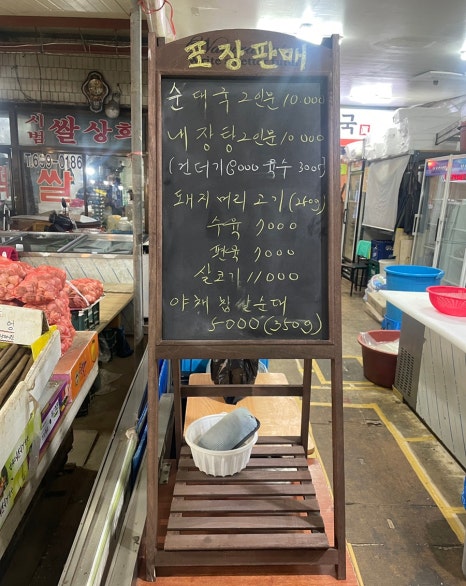 포장판매
순대국 2인분 10.000
내장탕 2인분 10.000
(건더기 6000 육수 3000)
돼지머리고기 (250g)
수육 7000
편육 7000
살코기 11000
야채 찹쌀순대
5000 (350g)
쌀상회
쌀
국